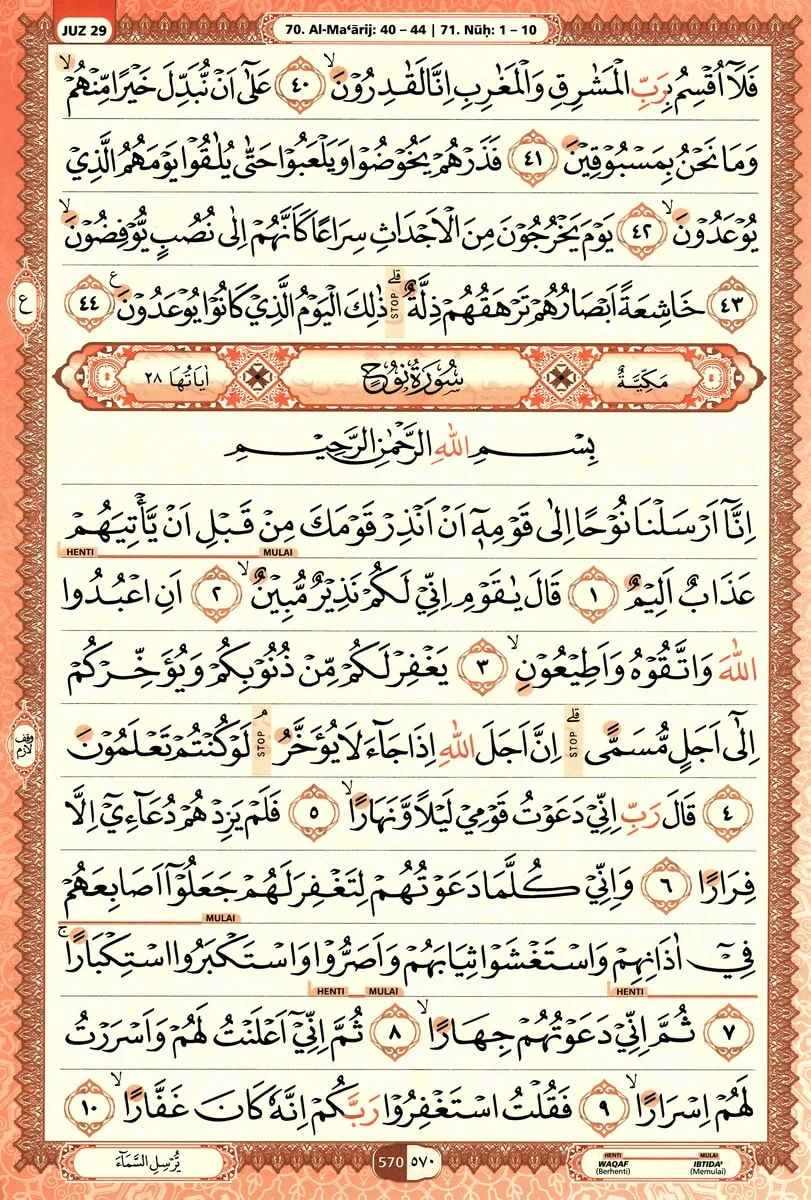 JUZ 29
70. Al-Ma‘ārij: 40 – 44 | 71. Nūḥ: 1 – 10
فَلَآ اُقْسِمُ بِرَبِّ الْمَشٰرِقِ وَالْمَغٰرِبِ اِنَّا لَقٰدِرُوْنَۙ ﴿٤٠﴾ عَلٰٓى اَنْ نُّبَدِّلَ خَيْرًا مِّنْهُمْۙ
وَمَا نَحْنُ بِمَسْبُوْقِيْنَ ﴿٤١﴾ فَذَرْهُمْ يَخُوْضُوْا وَيَلْعَبُوْا حَتّٰى يُلٰقُوْا يَوْمَهُمُ الَّذِيْ
يُوْعَدُوْنَۙ ﴿٤٢﴾ يَوْمَ يَخْرُجُوْنَ مِنَ الْاَجْدَاثِ سِرَاعًا كَاَنَّهُمْ اِلٰى نُصُبٍ يُّوْفِضُوْنَۙ
﴿٤٣﴾ خَاشِعَةً اَبْصَارُهُمْ تَرْهَقُهُمْ ذِلَّةٌ ۗ STOP ذٰلِكَ الْيَوْمُ الَّذِيْ كَانُوْا يُوْعَدُوْنَ ࣖ ﴿٤٤﴾
ع
مَكِّيَّةٌ سُوْرَةُ نُوْحٍ اٰيَاتُهَا ٢٨
بِسْمِ اللّٰهِ الرَّحْمٰنِ الرَّحِيْمِ
اِنَّآ اَرْسَلْنَا نُوْحًا اِلٰى قَوْمِهٖٓ اَنْ اَنْذِرْ قَوْمَكَ مِنْ قَبْلِ اَنْ يَّأْتِيَهُمْ
HENTI MULAI
عَذَابٌ اَلِيْمٌ ﴿١﴾ قَالَ يٰقَوْمِ اِنِّيْ لَكُمْ نَذِيْرٌ مُّبِيْنٌۙ ﴿٢﴾ اَنِ اعْبُدُوا
اللّٰهَ وَاتَّقُوْهُ وَاَطِيْعُوْنِۙ ﴿٣﴾ يَغْفِرْ لَكُمْ مِّنْ ذُنُوْبِكُمْ وَيُؤَخِّرْكُمْ
اِلٰٓى اَجَلٍ مُّسَمًّىۗ STOP اِنَّ اَجَلَ اللّٰهِ اِذَا جَاۤءَ لَا يُؤَخَّرُۘ STOP لَوْ كُنْتُمْ تَعْلَمُوْنَ
وقف لازم
﴿٤﴾ قَالَ رَبِّ اِنِّيْ دَعَوْتُ قَوْمِيْ لَيْلًا وَّنَهَارًاۙ ﴿٥﴾ فَلَمْ يَزِدْهُمْ دُعَاۤءِيْٓ اِلَّا
فِرَارًا ﴿٦﴾ وَاِنِّيْ كُلَّمَا دَعَوْتُهُمْ لِتَغْفِرَ لَهُمْ جَعَلُوْٓا اَصَابِعَهُمْ
MULAI
فِيْٓ اٰذَانِهِمْ وَاسْتَغْشَوْا ثِيَابَهُمْ وَاَصَرُّوْا وَاسْتَكْبَرُوا اسْتِكْبَارًاۚ
HENTI MULAI HENTI
﴿٧﴾ ثُمَّ اِنِّيْ دَعَوْتُهُمْ جِهَارًاۙ ﴿٨﴾ ثُمَّ اِنِّيْٓ اَعْلَنْتُ لَهُمْ وَاَسْرَرْتُ
لَهُمْ اِسْرَارًاۙ ﴿٩﴾ فَقُلْتُ اسْتَغْفِرُوْا رَبَّكُمْ اِنَّهٗ كَانَ غَفَّارًاۙ ﴿١٠﴾
يُّرْسِلِ السَّمَاۤءَ
570 ٥٧٠
HENTI MULAI
WAQAF IBTIDA'
(Berhenti) (Memulai)